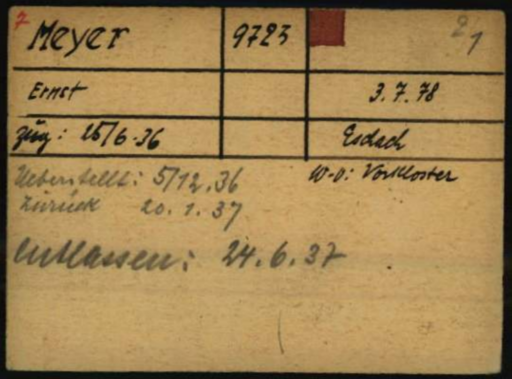 7 Meyer 9723 2/1
Ernst 3.7.78
Zug: 25/6.36 Esdach
Ueberstellt: 5/12.36 W-O: Vorkloster
Zurück 20.1.37
Entlassen: 24.6.37